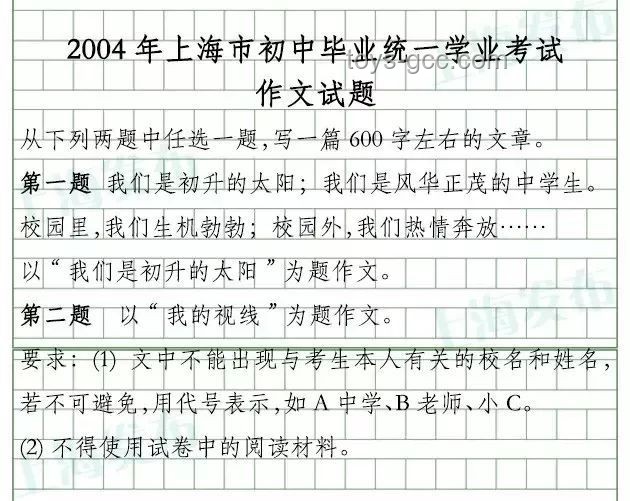 2004年上海市初中毕业统一学业考试
toys-gcc.com
作文试题
从下列两题中任选一题,写一篇600字左右的文章。
第一题 我们是初升的太阳；我们是风华正茂的中学生。
校园里,我们生机勃勃；校园外,我们热情奔放……
以“我们是初升的太阳”为题作文。
第二题 以“我的视线”为题作文。
要求：(1) 文中不能出现与考生本人有关的校名和姓名,
若不可避免,用代号表示,如A中学、B老师、小C。
(2) 不得使用试卷中的阅读材料。
上海发布
上海发布
上海发布
上海发布